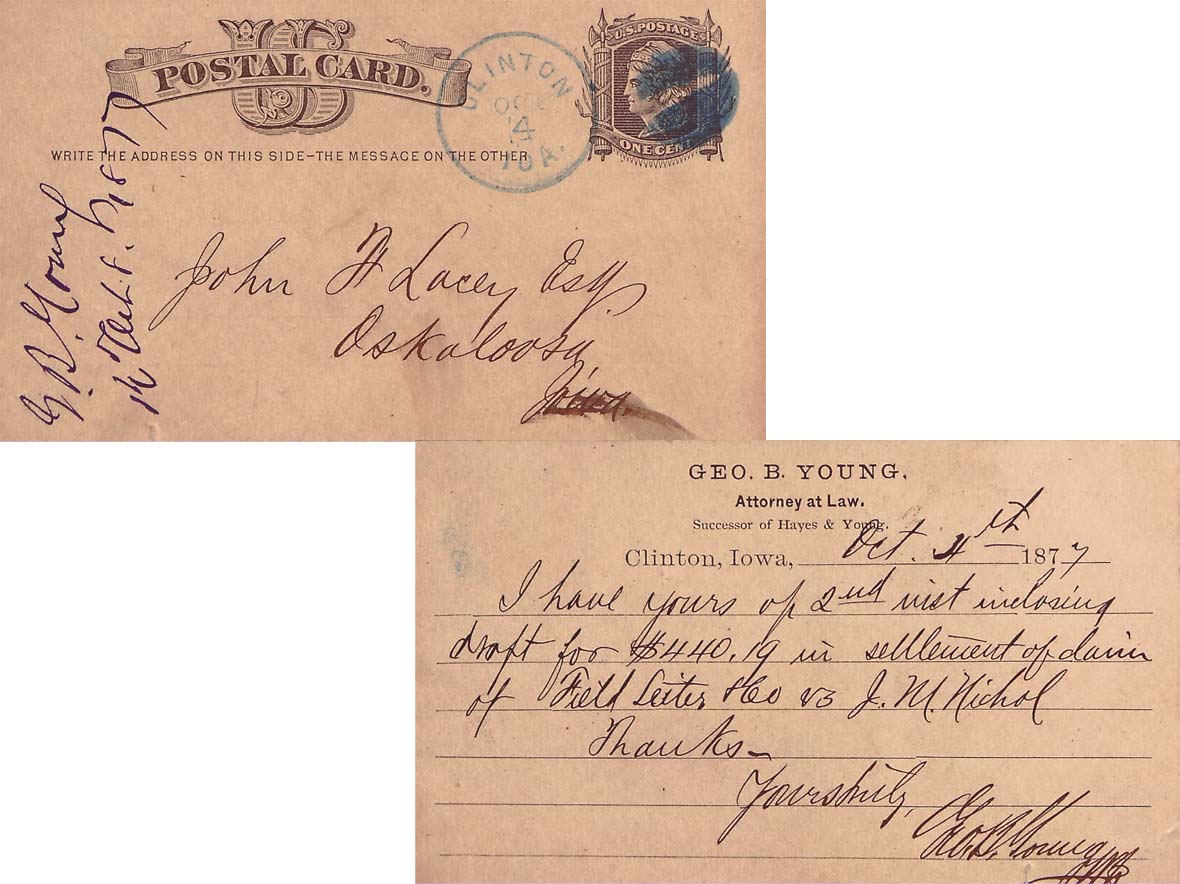 U S
POSTAL CARD.
WRITE THE ADDRESS ON THIS SIDE–THE MESSAGE ON THE OTHER
CLINTON
OCT
4
IOA.
U.S. POSTAGE
ONE CENT
G. B. Young
1877
John F Lacey Esq.
Oskaloosa
Iowa.
GEO. B. YOUNG,
Attorney at Law.
Successor of Hayes & Young.
Clinton, Iowa, Oct. 4th 1877
I have yours of 2nd inst inclosing
draft for $440.19 in settlement of claim
of Field Leiter & Co vs J. M. Nichol
Thanks—
Yours truly,
Geo. B. Young